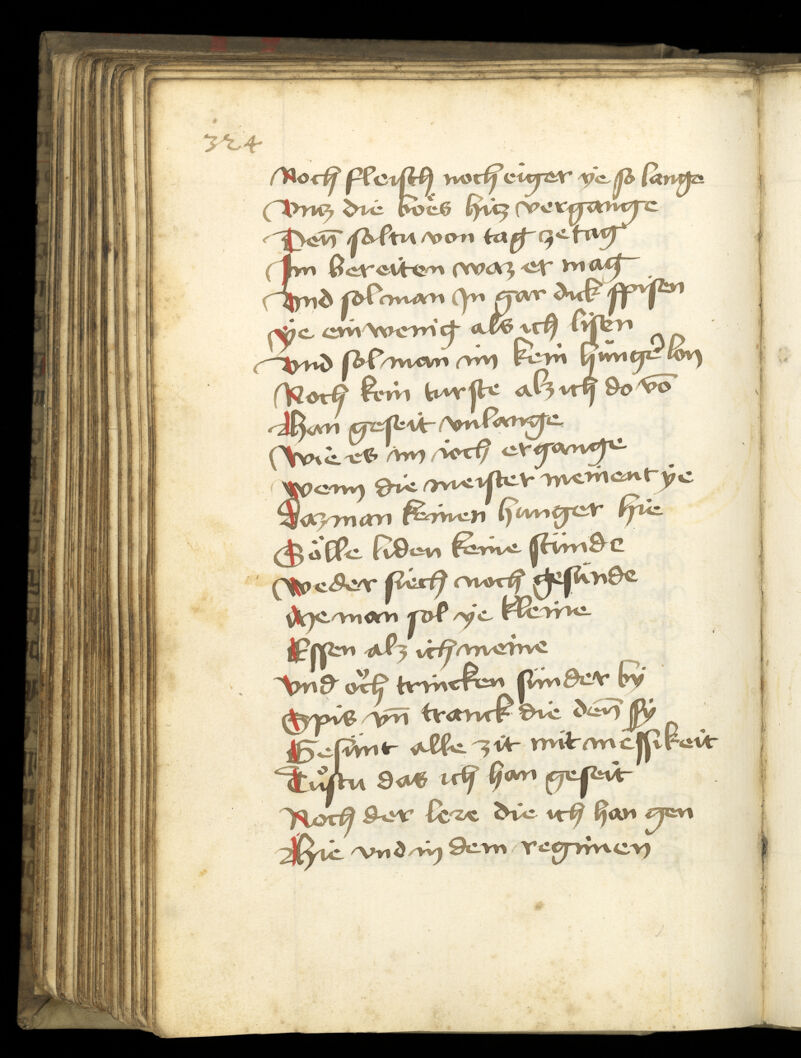 324
Noch fleisch noch eiger ye so lange
Vntz die boͤs hitz vergange
Den̄ soltu von tag ze tag
Im bereiten waz er mag
Vnd sol man Jn gar dick spisen
ye ein wenig als ich lisen
Vnd sol man im kein hunger lon
Noch kein turste alz ich do vō
Han geseit vnlange
Wie es im ioch ergange
Wenn die meister meinent ye
Daz man keinen hunger hie
Soͤlle liden keine stunde
Weder siech noch gesunde
Me man sol ye kleine
Essen alz ich meine
Vnd oͮch trincken sunder by
Spis vn̄ tranck die den̄ sy
Gesunt alle zit mit messikeit
Tuͦstu das ich han geseit
Noch der lere die ich han gen
Hie vnd in dem regimen